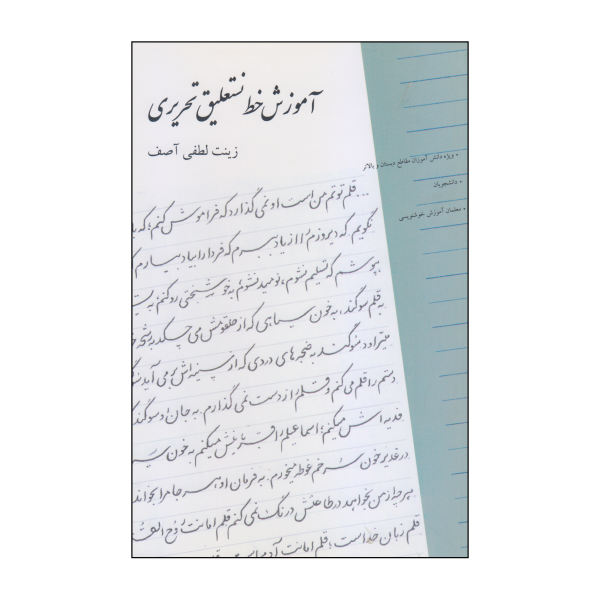 آموزش خط نستعلیق تحریری
زینت لطفی آصف
• ویژه دانش آموزان مقاطع دبستان و بالاتر
• دانشجویان
• معلمان آموزش خوشنویسی
... قلم توتم من است او نمی گذارد که فراموش کنم؛ که
نگویم. که دیروزم را از یاد ببرم که فردا را بیاد بیارم
بپوشم که تسلیم نشوم، نومید نشوم به خوشبختی رو کنم؛ به
به قلم سوگند، به خون سیاهی که از حلقومش می چکد به رشحه
میتراود سوگند به ضجه های دردی که از سینه اش بر می آید
دستم را قلم می کنم و قلمم را از دست نمی گذارم. به جان او سوگند که
فدیه اش میکنم؛ اسماعیلم را قربانیش میکنم به خون
در غدیر خون سرخم غوطه میخورم. به فرمان او، هر جا مرا بخواند
هر چه از من بخواهد در طاعتش درنگ نمی کنم قلم امانت روح
قلم زبان خداست؛ قلم امانت آدم است